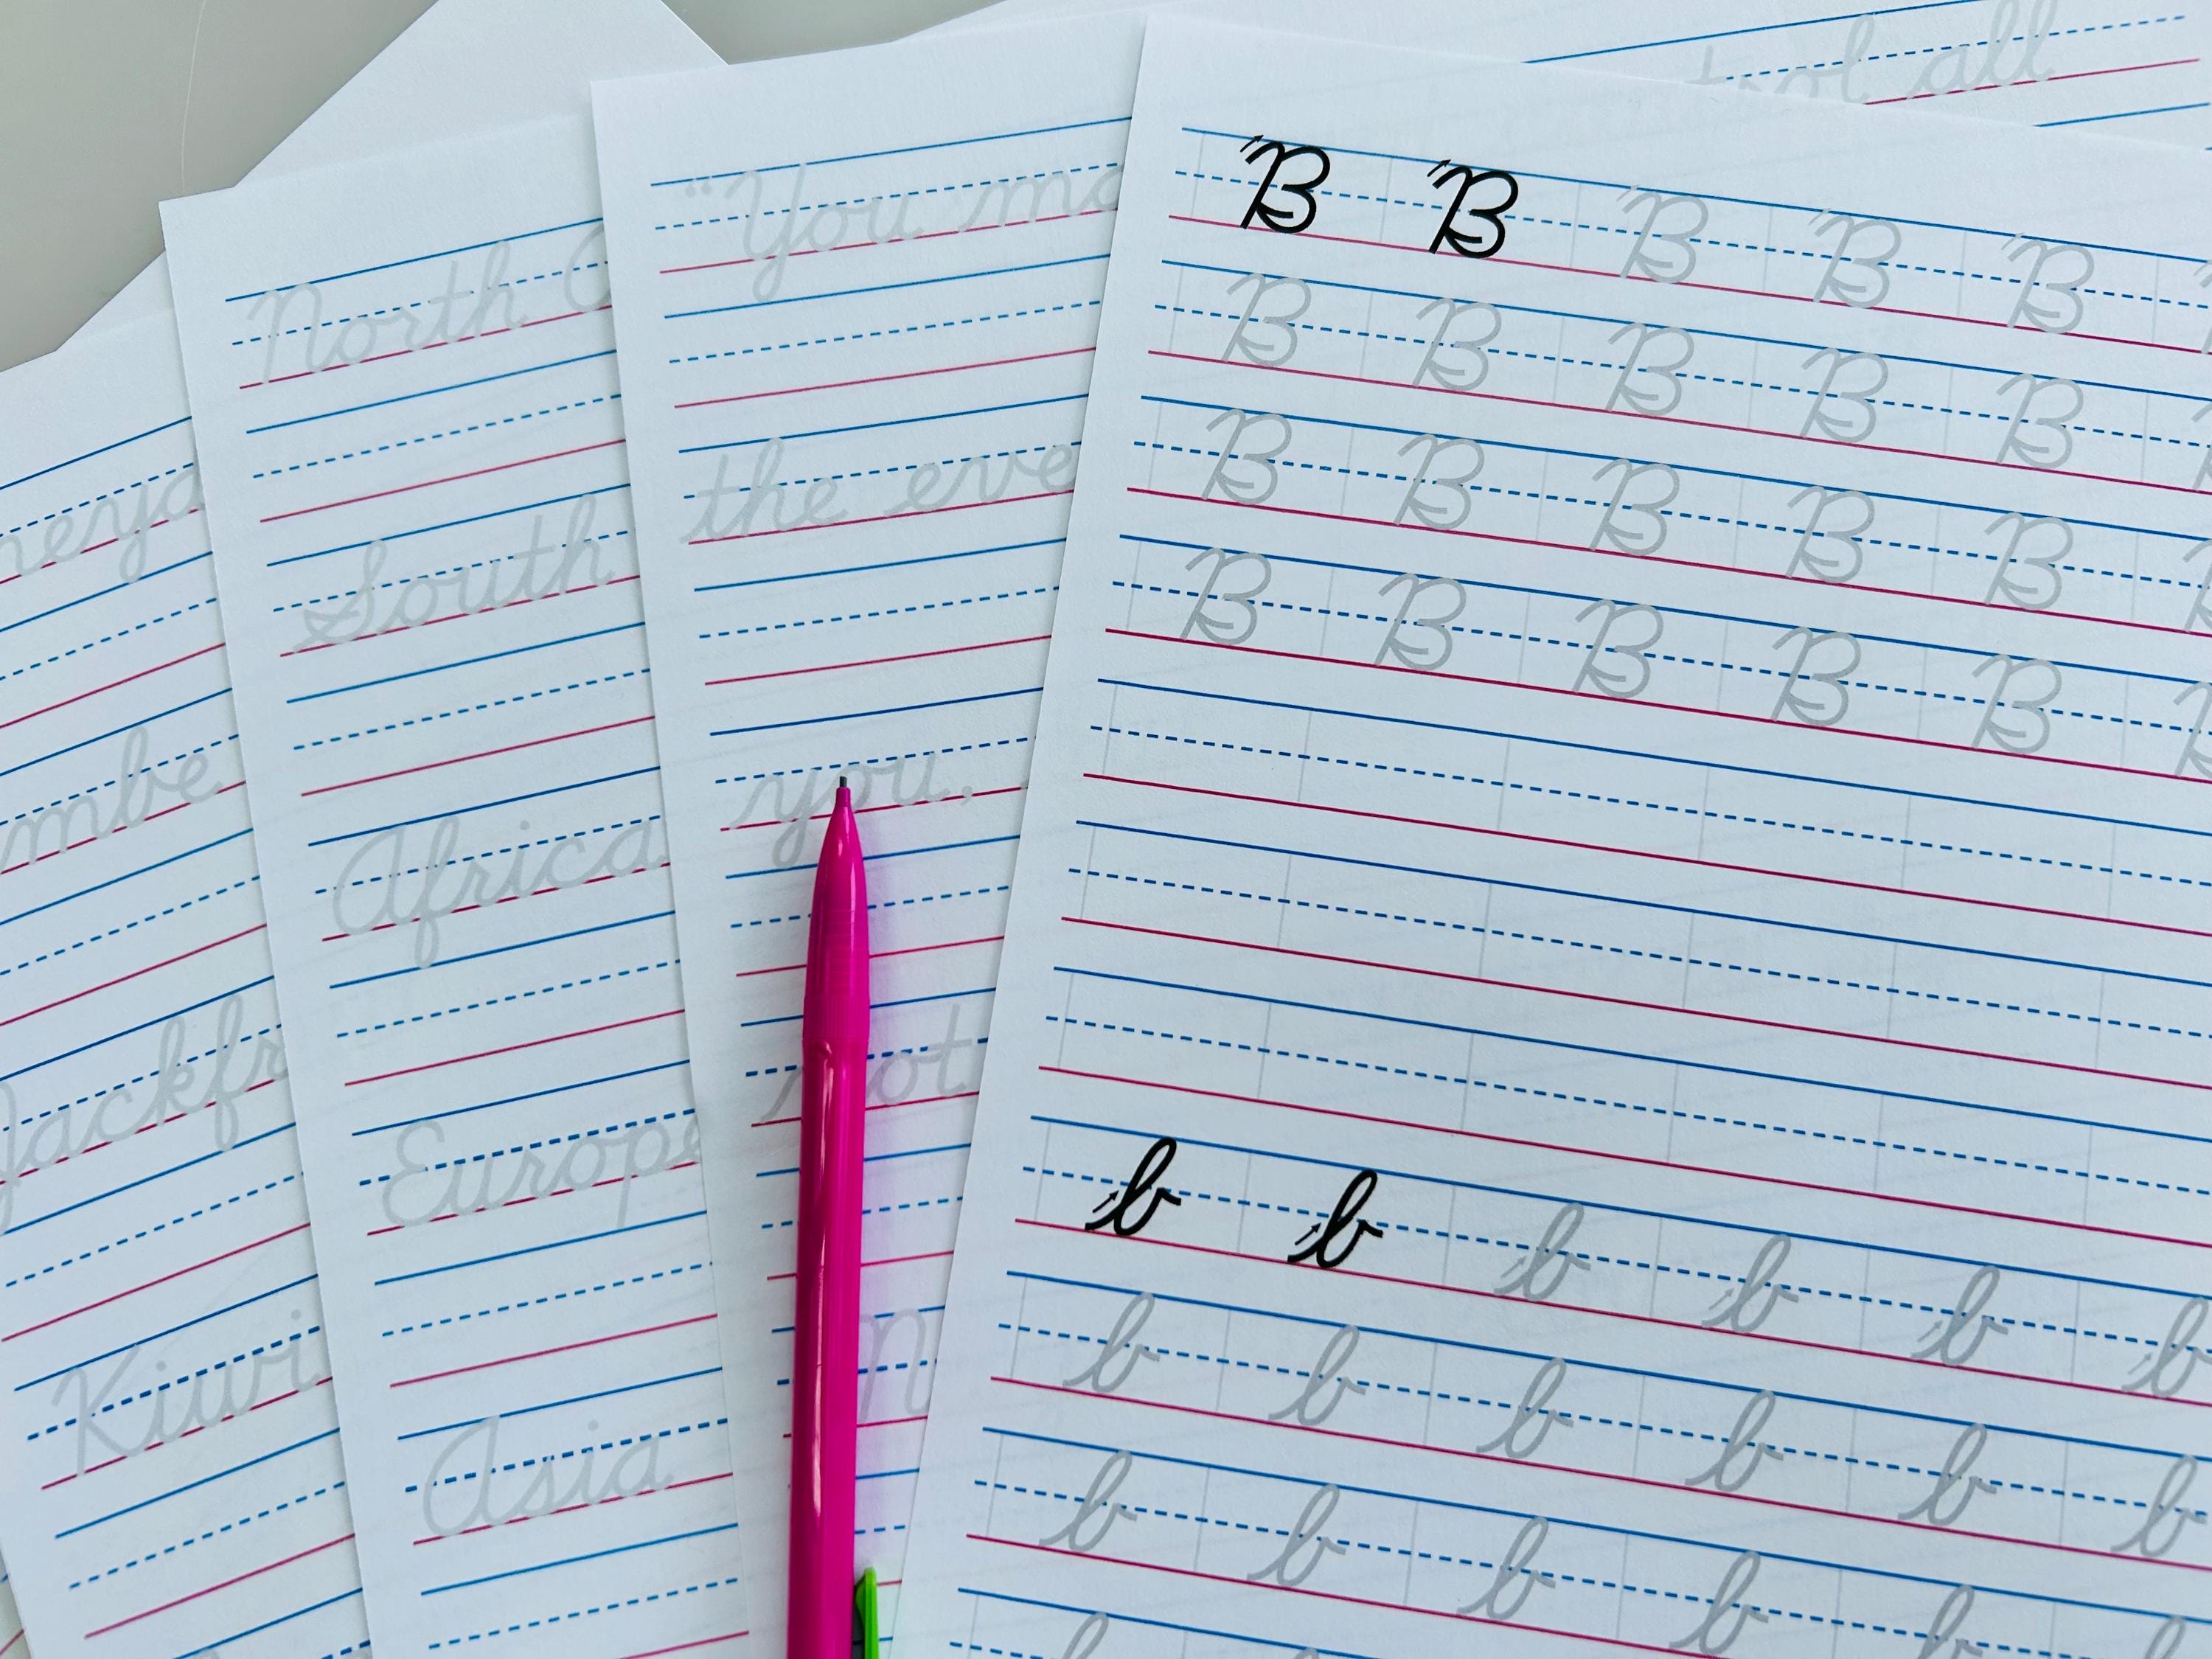 neya
mbe
Jackfr
Kiwi
North
South
Africa
Europe
Asia
"You ma
the eve
you,
not
N
ol all
B B B B B
B B B B B
B B B B B
B B B B B
b b b b b b
b b b b b
b b b b b b
b b b b b